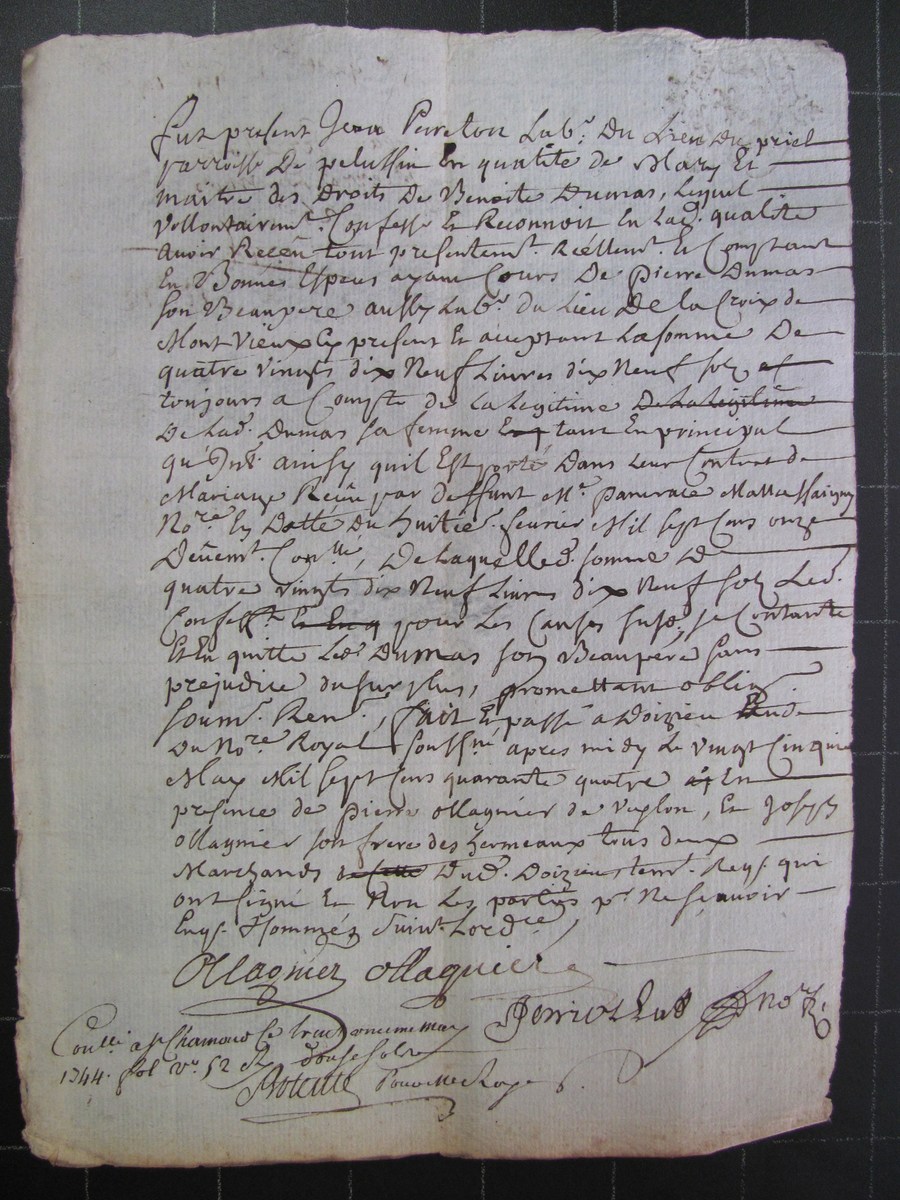 Fut present Jean Perreton Lab.r Du Lieu Du priel
parroisse De pelussin En qualité de Mary Et
maitre des Droits De Benoite Dumas, Lequel
vollontairem.t Confesse Et Reconnoit En Lad. qualité
avoir Receu tout presentem.t Reellem.t Et Comptant
En Bonnes Especes ayant Cours De Pierre Dumas
son Beaupere aussy Lab.r Du Lieu De La Croix de
Mont Vieux Cy present Et acceptant La somme De
quatre vingts dix Neuf Livres dix Neuf solz et
toujours a Compte de La Legitime De La Legitime
De Lad. Dumas sa femme tant En principal
qu'Int. ainsy quil Est porté Dans Leur Contrat de
Mariage Receu par deffunt M.e pancrace
No.re En Datte Du huitie. fevrier Mil sept Cens onze
Deüem.t Con.llé, De Laquelled. somme De
quatre vingts dix Neuf Livres dix Neuf solz Led.
Confess.t pour Les Causes susd. se Contante
Et En quitte Led. Dumas son Beaupere sans
prejudice du surplus, promettant oblig.
soum. Ren., fait Et passé a Doizieu Etude
Du No.re Royal soussné apres midy Le vingt Cinquie
May Mil sept Cens quarante quatre En
presence de Pierre Ollagnier de Veylon, Et Joseph
Ollagnier son frere des hermeaux tous deux
Marchands Dud. Doizieu tem. Reqs. qui
ont signé Et Non Les parties p.r Ne sçavoir
Enqs. Et sommés suiv.t Lord.ce,
Ollagnier Ollagnier
No.re R.
Con.llé a St Chamond Ce
1744. fol v.o 52 Rx douse sols